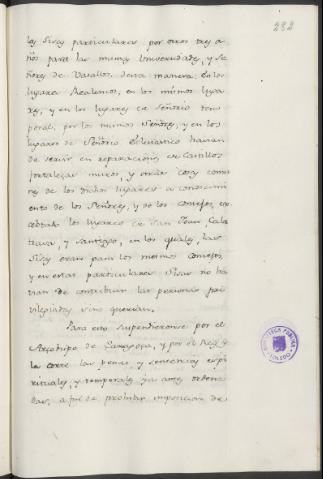 232
las Sisas particulares por otros tres a-
ños para las mismas Universidades, y Se-
ñores de Vasallos desta manera: En los
lugares Realencos, en los mismos luga-
res, y en los lugares de Señorio tem-
poral, por los mismos Señores, y en los
lugares de Señorio Eclesiastico havian
de servir en reparaciones de Castillos
fortalezas muros, y otras cosas comu-
nes de los dichos lugares a conocimi-
ento de los Señores, y de los concejos, ex-
ceptando los lugares de San Juan, Cala-
trava, y Santiago, en los quales, las
Sisas eran para los mismos concejos,
y en estas particulares Sisas no ha-
vian de contribuir las personas pri-
vilegiadas, sino querian.
Para esto suspendieronse por el
Arzobispo de Zaragoza, y por el Rey, y
la corte las penas y sentencias espi-
rituales, y temporales ya antes ordena-
das, a fin de prohibir imposicion de
BIBLIOTECA PUBLICA
TOLEDO